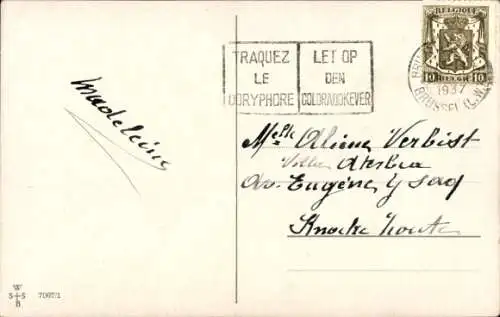 Madeleine
TRAQUEZ
LE
DORYPHORE
LET OP
DEN
COLORADOKEVER
BELGIQUE
10 BELGIE 10
1937
BRUSSEL
Melle Aliene Verbist
Villa
Av. Eugène Ysaÿ
Knocke Zoute
W
5+5
B
7007/1